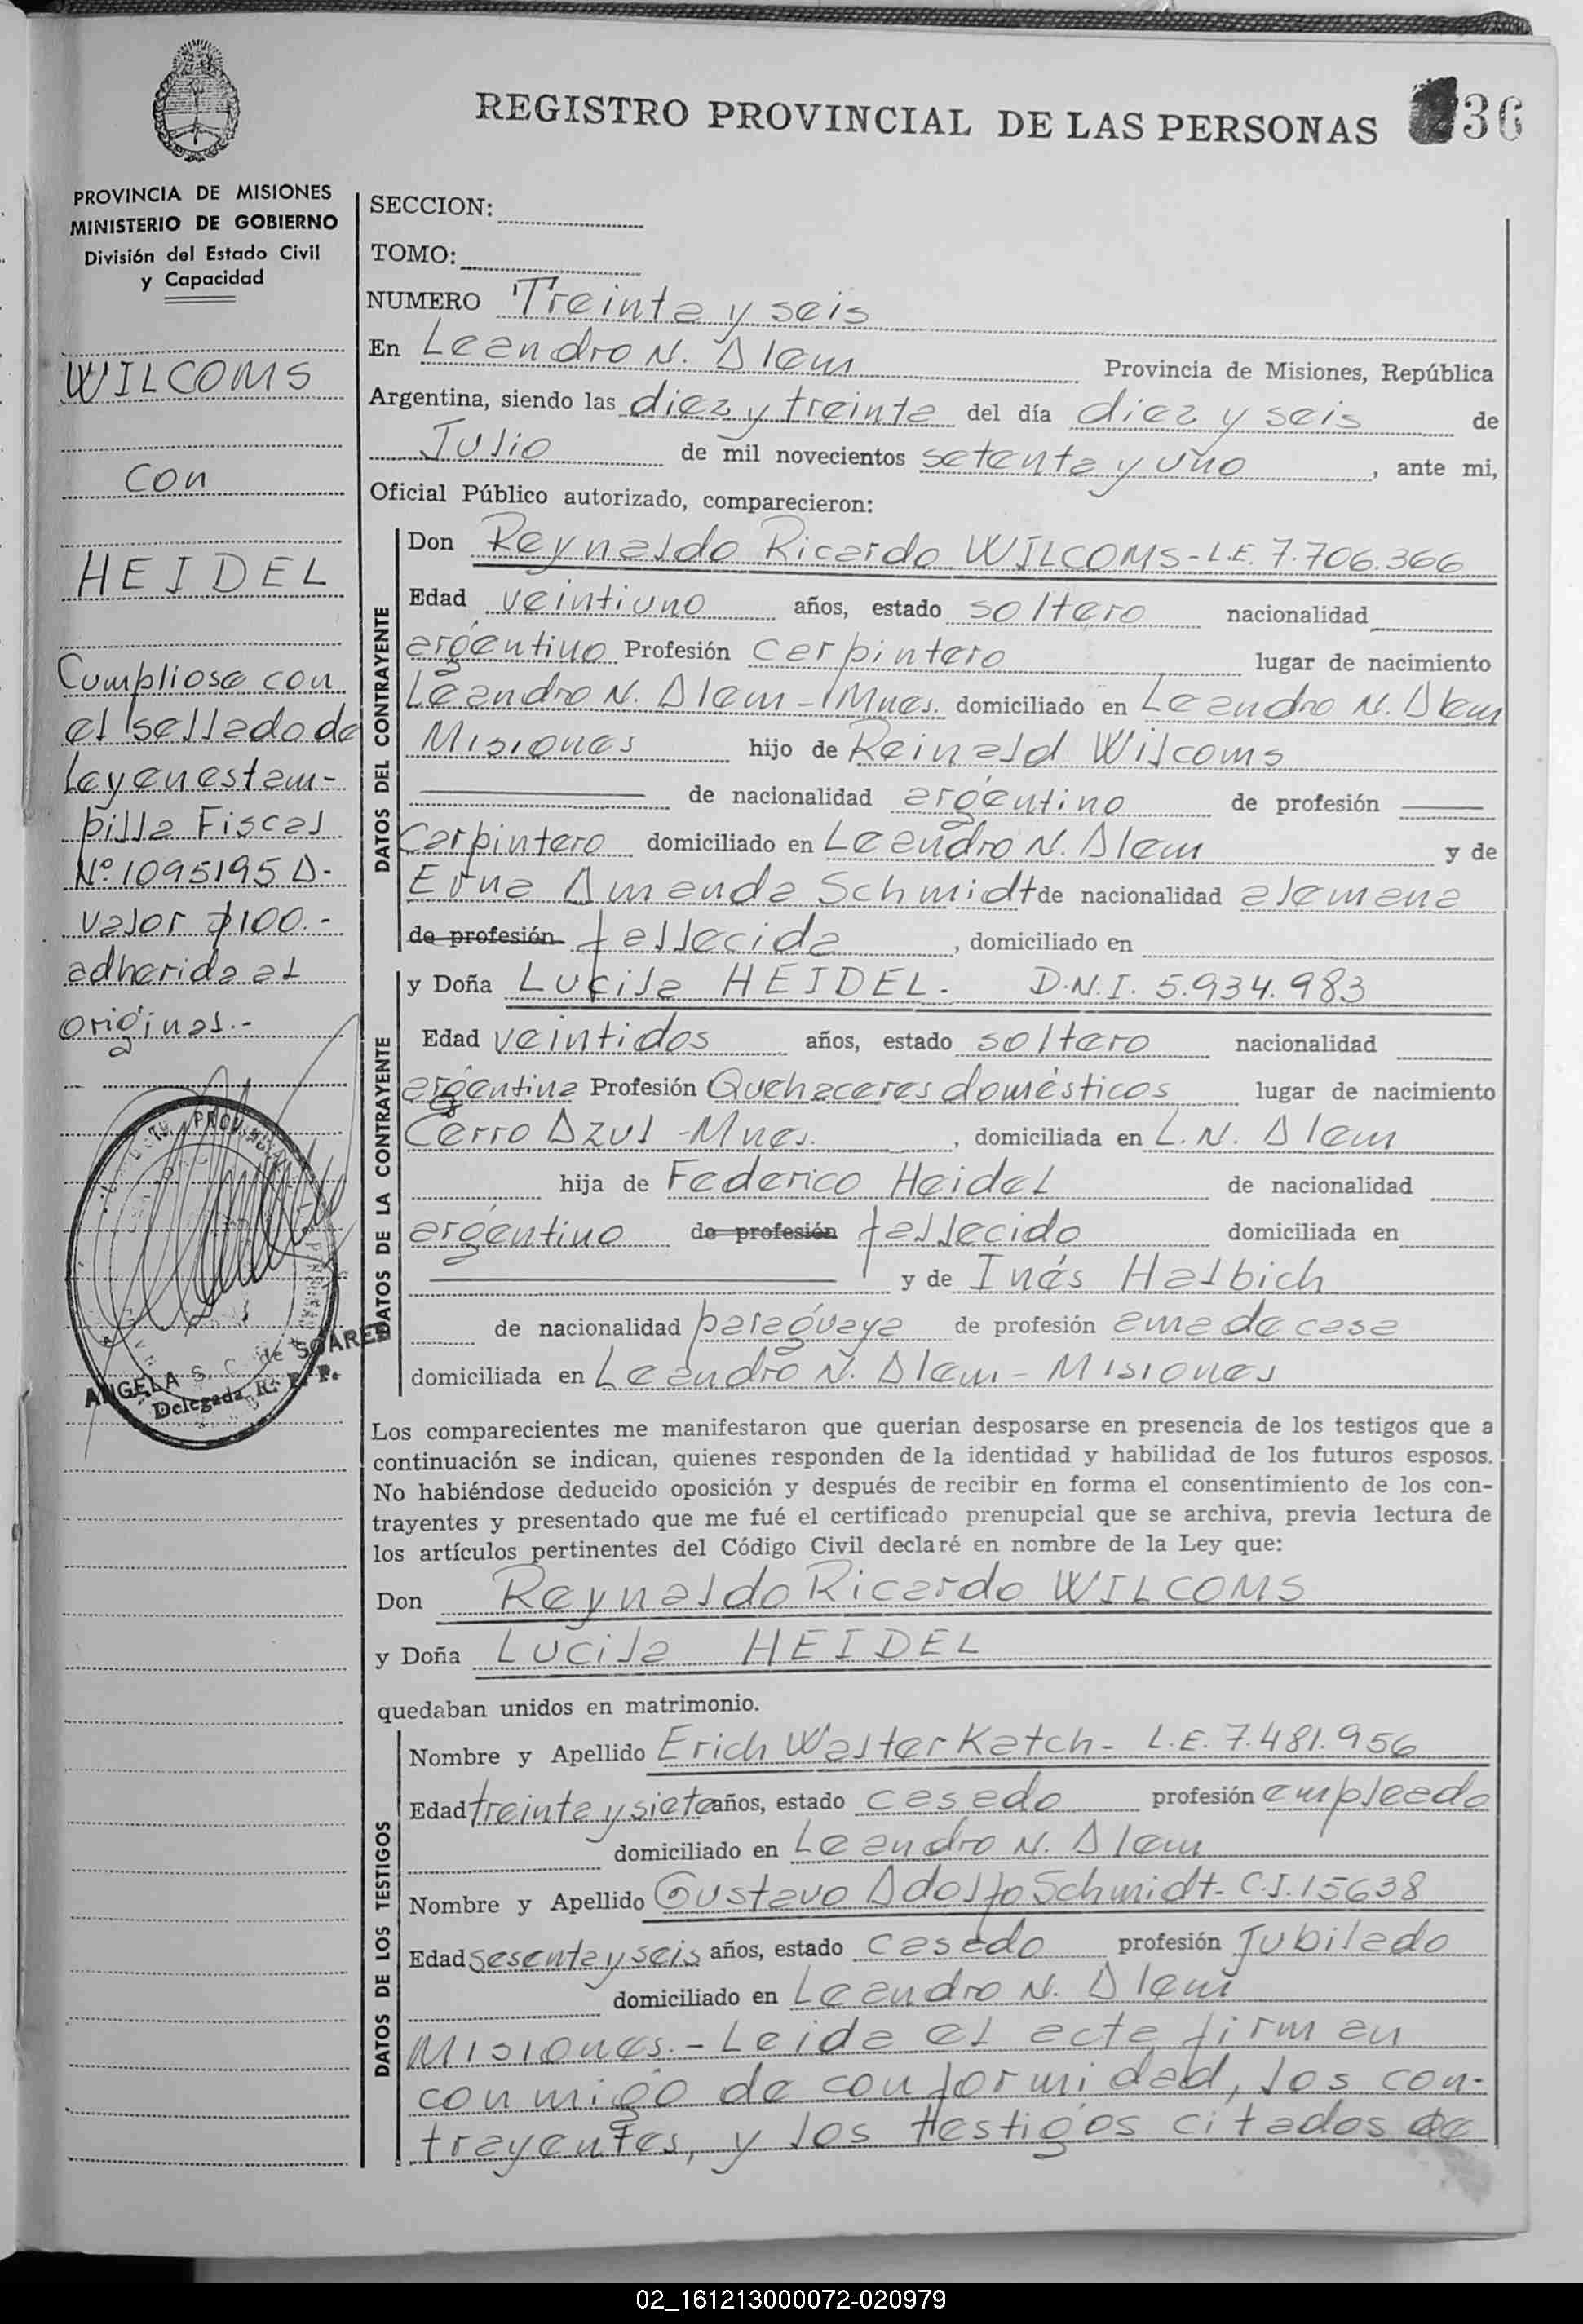 REGISTRO PROVINCIAL DE LAS PERSONAS 36
PROVINCIA DE MISIONES
MINISTERIO DE GOBIERNO
División del Estado Civil
y Capacidad
WILCOMS
con
HEIDEL
Cumpliose con
el sellado de
ley en estam-
pilla Fiscal
Nº 1095195 A.-
valor $100.-
adherida al
original.-
ANGELA S. C. de SOAREZ
Delegada R. P. P.
SECCION:
TOMO:
NUMERO Treinta y seis
En Leandro N. Alem Provincia de Misiones, República
Argentina, siendo las diez y treinta del día diez y seis de
Julio de mil novecientos setenta y uno, ante mi,
Oficial Público autorizado, comparecieron:
DATOS DEL CONTRAYENTE
Don Reynaldo Ricardo WILCOMS - L.E. 7.706.366
Edad veintiuno años, estado soltero nacionalidad
argentino Profesión Carpintero lugar de nacimiento
Leandro N. Alem - Mnes. domiciliado en Leandro N. Alem
Misiones hijo de Reinald Wilcoms
de nacionalidad argentino de profesión
Carpintero domiciliado en Leandro N. Alem y de
Erna Amanda Schmidt de nacionalidad alemana
de profesión fallecida, domiciliado en
DATOS DE LA CONTRAYENTE
y Doña Lucila HEIDEL. D.N.I. 5.934.983
Edad veintidos años, estado soltero nacionalidad
argentina Profesión Quehaceres domésticos lugar de nacimiento
Cerro Azul - Mnes., domiciliada en L. N. Alem
hija de Federico Heidel de nacionalidad
argentino de profesión fallecido domiciliada en
y de Inés Halbich
de nacionalidad paraguaya de profesión ama de casa
domiciliada en Leandro N. Alem - Misiones
Los comparecientes me manifestaron que querían desposarse en presencia de los testigos que a
continuación se indican, quienes responden de la identidad y habilidad de los futuros esposos.
No habiéndose deducido oposición y después de recibir en forma el consentimiento de los con-
trayentes y presentado que me fué el certificado prenupcial que se archiva, previa lectura de
los artículos pertinentes del Código Civil declaré en nombre de la Ley que:
Don Reynaldo Ricardo WILCOMS
y Doña Lucila HEIDEL
quedaban unidos en matrimonio.
DATOS DE LOS TESTIGOS
Nombre y Apellido Erich Walter Katch - L.E. 7.481.956
Edad treinta y siete años, estado casado profesión empleado
domiciliado en Leandro N. Alem
Nombre y Apellido Gustavo Adolfo Schmidt - C.I. 15638
Edad sesenta y seis años, estado casado profesión Jubilado
domiciliado en Leandro N. Alem
Misiones.- Leida el acta firman
conmigo de conformidad, los con-
trayentes, y los testigos citados de
02_161213000072-020979